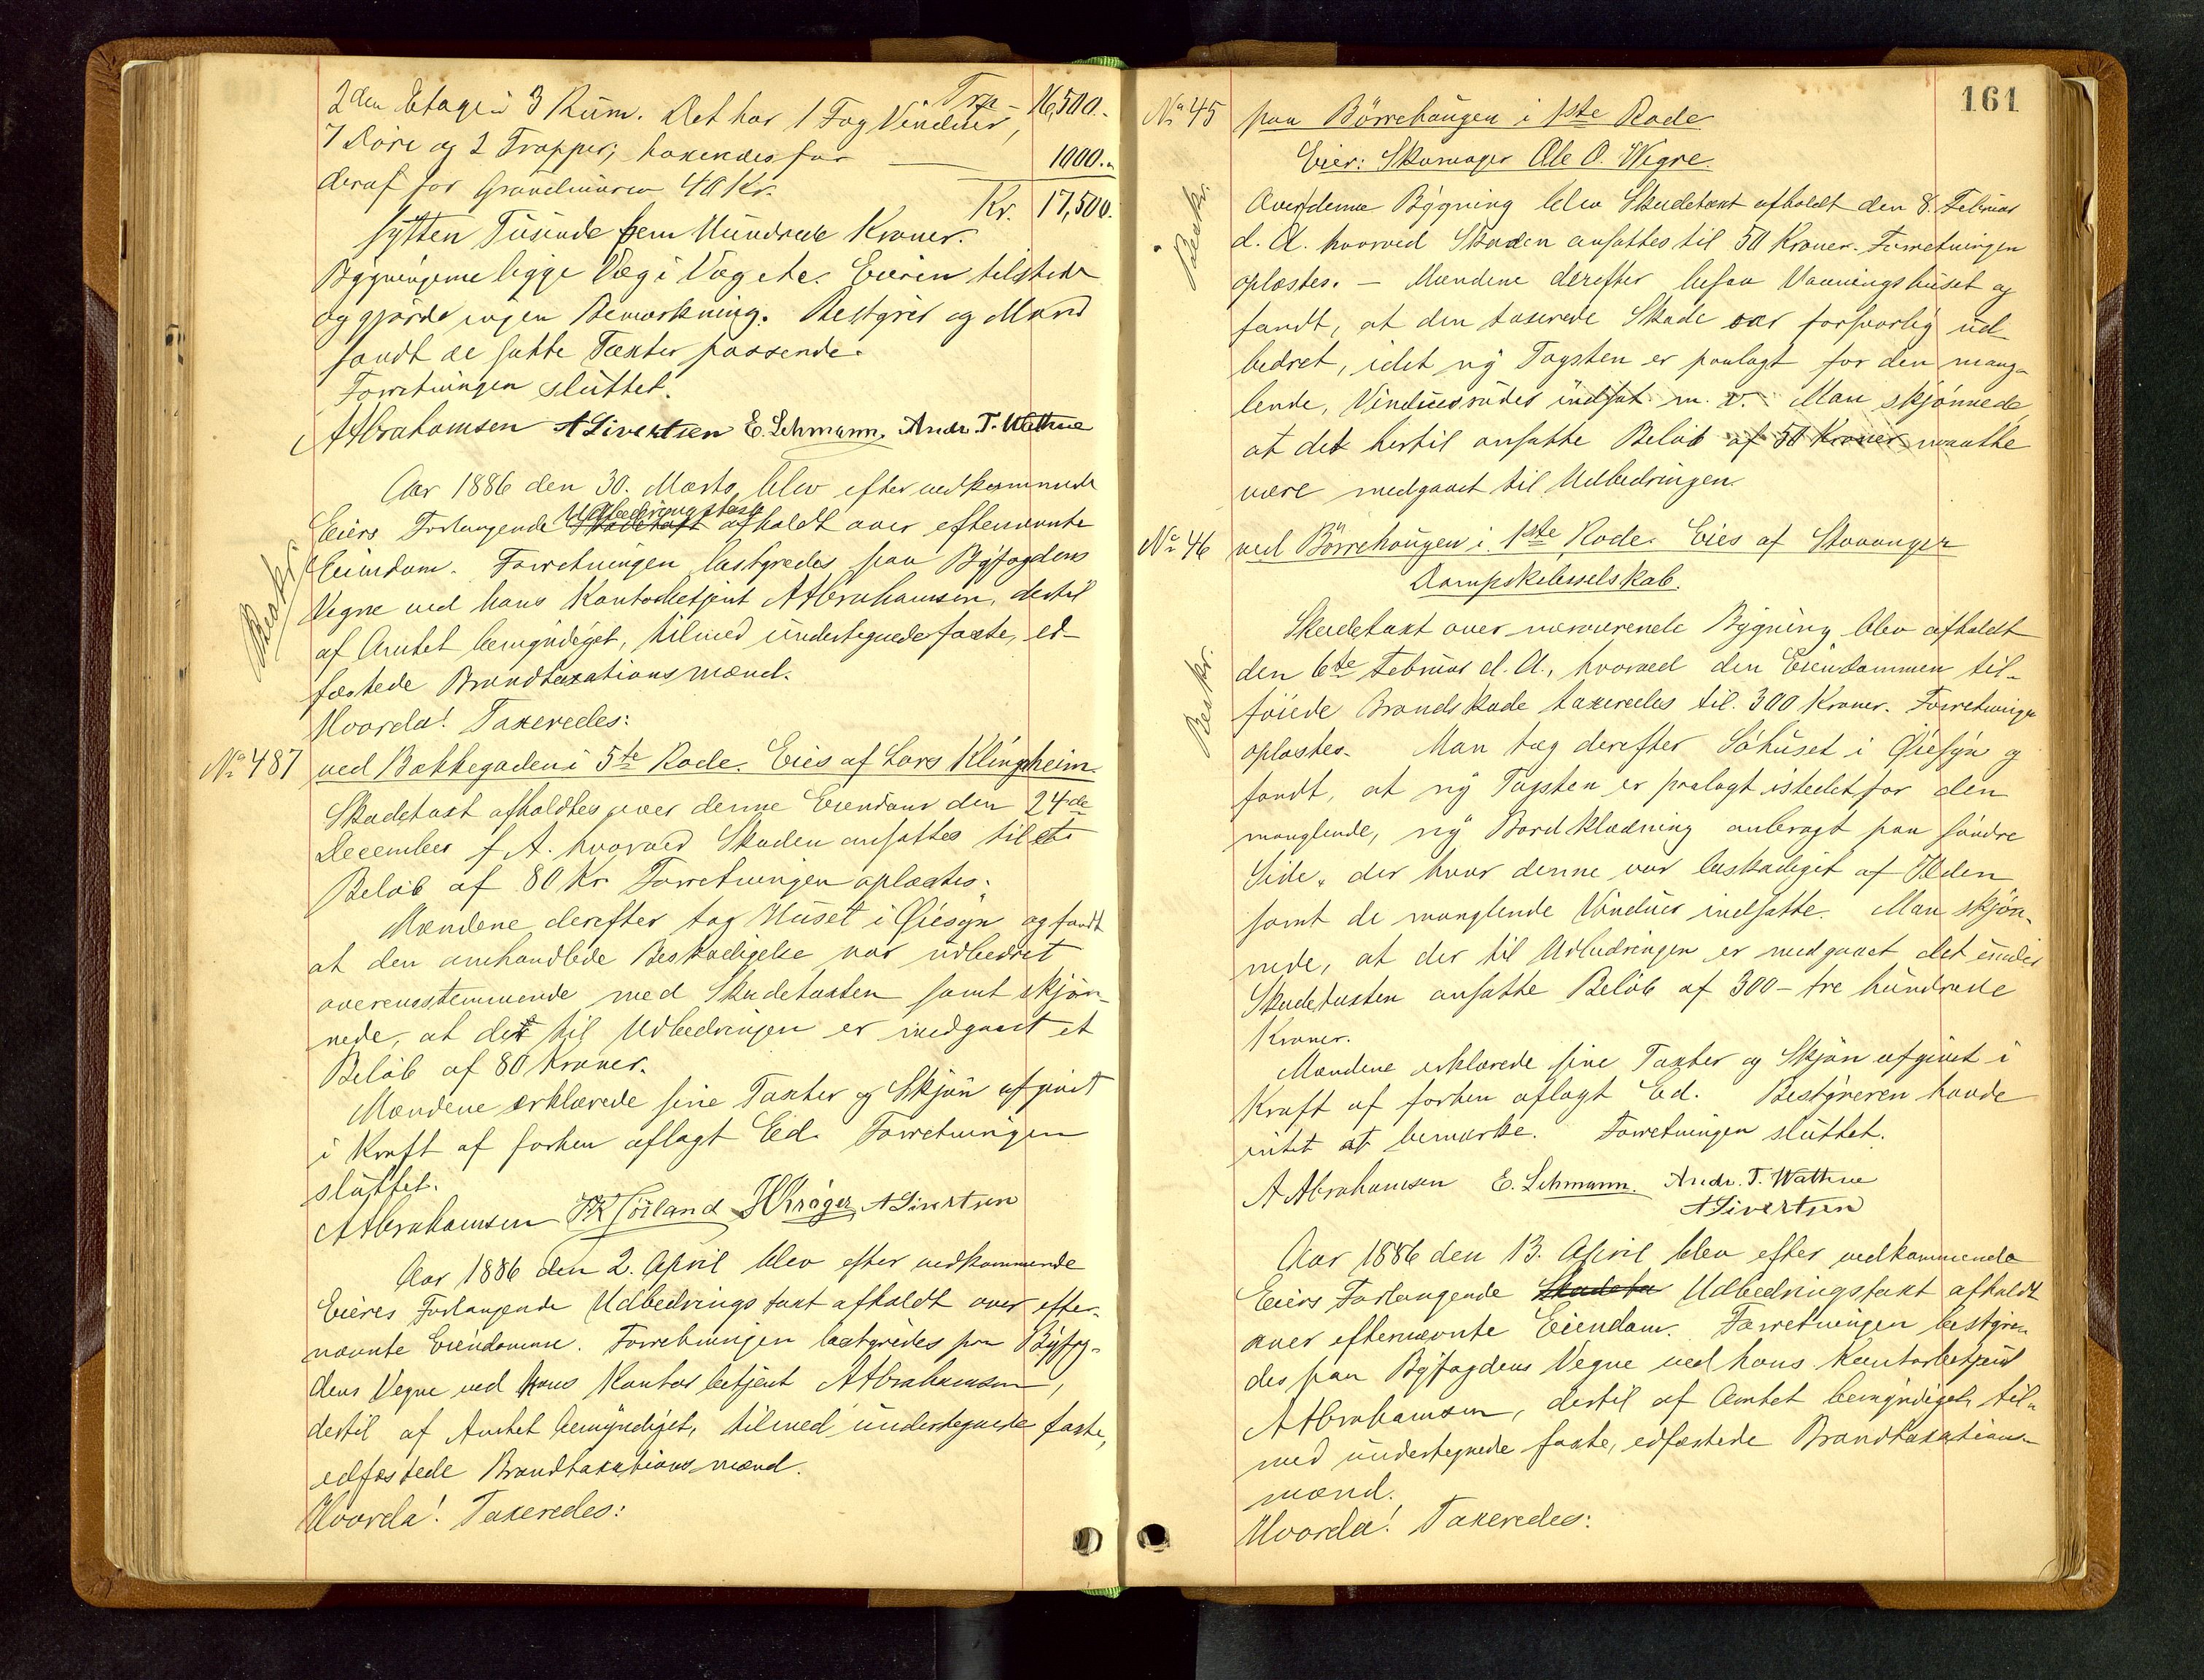 Trp - 16,500.-
2den Etage i 3 Rum. Det har 1 Fag Vinduer,
7 Döre og 2 Trapper; taxeredes for — 1000.-
deraf for Grundmuren 40 Kr.
Kr. 17,500.
sytten Tusinde fem Hundrede Kroner.
Bygningerne ligge Væg i Væg etc. Eieren tilstede
og gjorde ingen Bemærkning. Bestyrer og Mænd
fandt de satte Taxter passende.
Forretningen sluttet.
A Abrahamsen A Sivertsen E. Lehmann. Andr. T. Wathne
Aar 1886 den 30. Marts blev efter vedkommende
Udbedringstaxt
Eiers Forlangende Skadetaxt afholdt over efternævnte
Eiendom. Forretningen bestyredes paa Byfogdens
Beskr.
Vegne ved hans Kontorbetjent A Abrahamsen, dertil
af Amtet bemyndiget, tilmed undertegnede faste, ed-
fæstede Brandtaxationsmænd.
Hvorda! Taxeredes:
No 487 ved Bakkegaden i 5te Rode. Eies af Lars Klingsheim.
Skadetaxt afholdtes over denne Eiendom den 24de
December f. A. hvorved Skaden ansattes til et
Beløb af 80 Kr. Forretningen oplæstes.
Mændene derefter tog Huset i Øiesyn og fandt
at den omhandlede Beskadigelse var udbedret
overensstemmende med Skadetaxten samt skjøn-
nede, at det til Udbedringen er medgaaet et
Beløb af 80 Kroner.
Mændene erklærede sine Taxter og Skjøn afgivet
i Kraft af forhen aflagt Ed. Forretningen
sluttet.
A Abrahamsen H Krøger A Sivertsen
Aar 1886 den 2. April blev efter vedkommende
Eieres Forlangende Udbedringstaxt afholdt over efter-
nævnte Eiendomme. Forretningen bestyredes paa Byfog-
dens Vegne ved hans Kontorbetjent A Abrahamsen,
dertil af Amtet bemyndiget, tilmed undertegnede faste,
edfæstede Brandtaxationsmænd.
Hvorda! Taxeredes:
161
No 45 paa Börrehaugen i 1ste Rode
Eier: Skomager Ole O. Wigre.
Beskr.
Over denne Bygning blev Skadetaxt afholdt den 8. Februar
d. A. hvorved Skaden ansattes til 50 Kroner. Forretningen
oplæstes. - Mændene derefter besaa Vaaningshuset og
fandt, at den taxerede Skade var forsvarlig ud-
bedret, idet ny Tagsten er paalagt for den mang-
lende, Vinduesruder indsat m. v. Man skjønnede,
at det hertil ansatte Beløb af 50 Kroner maatte
være medgaaet til Udbedringen.
No 46 ved Börrehaugen i 1ste Rode. Eies af Stavanger
Dampskibsselskab.
Skadetaxt over nærværende Bygning blev afholdt
Beskr.
den 6te Februar d. A., hvorved den Eiendommen til-
føiede Brandskade taxeredes til 300 Kroner. Forretningen
oplæstes. Man tog derefter Søhuset i Øiesyn og
fandt, at ny Tagsten er paalagt istedetfor den
manglende, ny Bordklædning anbragt paa søndre
Side, der hvor denne var beskadiget af Ilden
samt de manglende Vinduer indsatte. Man skjøn-
nede, at der til Udbedringen er medgaaet det under
Skadetaxten ansatte Beløb af 300 - tre hundrede
Kroner.
Mændene erklærede sine Taxter og Skjøn afgivet i
Kraft af forhen aflagt Ed. Bestyreren havde
intet at bemærke. Forretningen sluttet.
A Abrahamsen E. Lehmann. Andr. T. Wathne
A Sivertsen
Aar 1886 den 13. April blev efter vedkommende
Eiers Forlangende Skadeta Udbedringstaxt afholdt
over efternævnte Eiendom. Forretningen bestyre-
des paa Byfogdens Vegne ved hans Kontorbetjent
A Abrahamsen, dertil af Amtet bemyndiget, til-
med undertegnede faste, edfæstede Brandtaxations-
mænd.
Hvorda! Taxeredes: